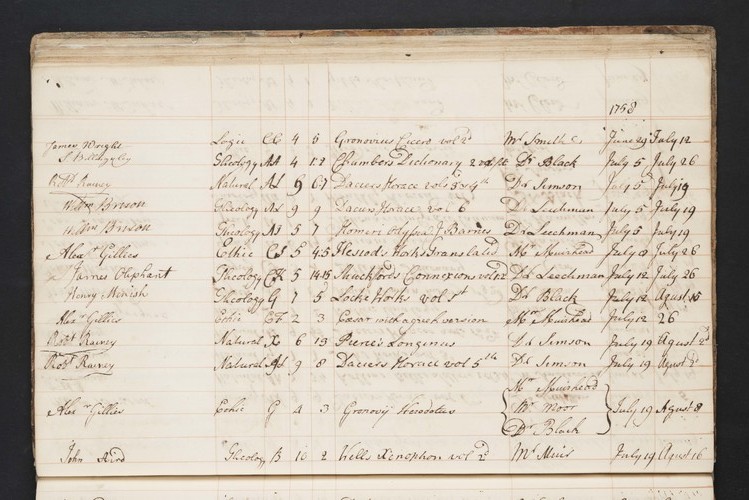 1758
James Wright Logic CC 4 6 Gronovius Cicero vol 2d Mr Smith June 29 July 12
Theology AA 4 12 Chambers Dictionary 2 Dr Black July 5 July 26
Robt Rainey Natural 9 67 Daciers Horace vols 3 & 4th Dr Simson July 5 July 19
Willm Bryson Theology 9 9 Daciers Horace vol 6 Dr Leechman July 5 July 19
Willm Bryson Theology 5 7 Homers Odyssea J Barnes Dr Leechman July 5 July 19
Alexr Gillies Ethic 5 45 Hesiods Works Translated Mr Muirhead July 8 July 26
James Oliphant Theology CH 5 1415 Shuckfords Connexions Dr Leechman July 12 July 26
Henry Theology G 7 5 Locks Works vol 1st Dr Black July 12 Agust 15
Alexr Gillies Ethic 2 3 Cæsar with a greek version Mr Muirhead July 12 26
Robt Rainey Natural X 6 13 Pierce's Longinus Dr Simson July 19 Agust 2d
Robt Rainey Natural 9 8 Daciers Horace vol 5th Dr Simson July 19 Agust 2
Mr Muirhead
Alexr Gillies Ethic G 4 3 Gronovij Herodotus Mr Moor July 19 Agust 8
Dr Black
John Aird Theology B 10 2 Wells Xenophon vol 2d Mr Muir July 19 Agust 16